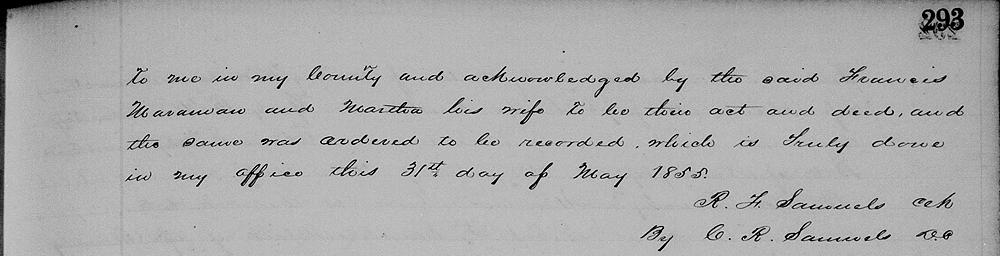 293
to me in my County and acknowledged by the said Francis
Maraman and Martha his wife to be their act and deed, and
the same was ordered to be recorded, which is truly done
in my office this 31st day of May 1855.
R. F. Samuels Clk
By C. R. Samuels D.C